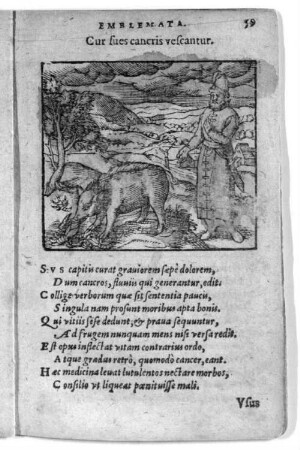 EMBLEMATA. 59
Cur sues cancris vescantur.
SVS capitis curat graviorem sæpè dolorem,
Dum cancros, fluviis qui generantur, edit:
Collige verborum quæ sit sententia paucis,
Singula nam prosunt moribus apta bonis.
Qui vitiis sese dedunt, & prava sequuntur,
Ad frugem nunquam mens nisi versa redit.
Est opus inflectat vitam contrarius ordo,
Atque gradus retrò, quomodò cancer, eant.
Hæc medicina levat lutulentos nectare morbos,
Consilio vt liqueat pœnituisse mali.
Vsus